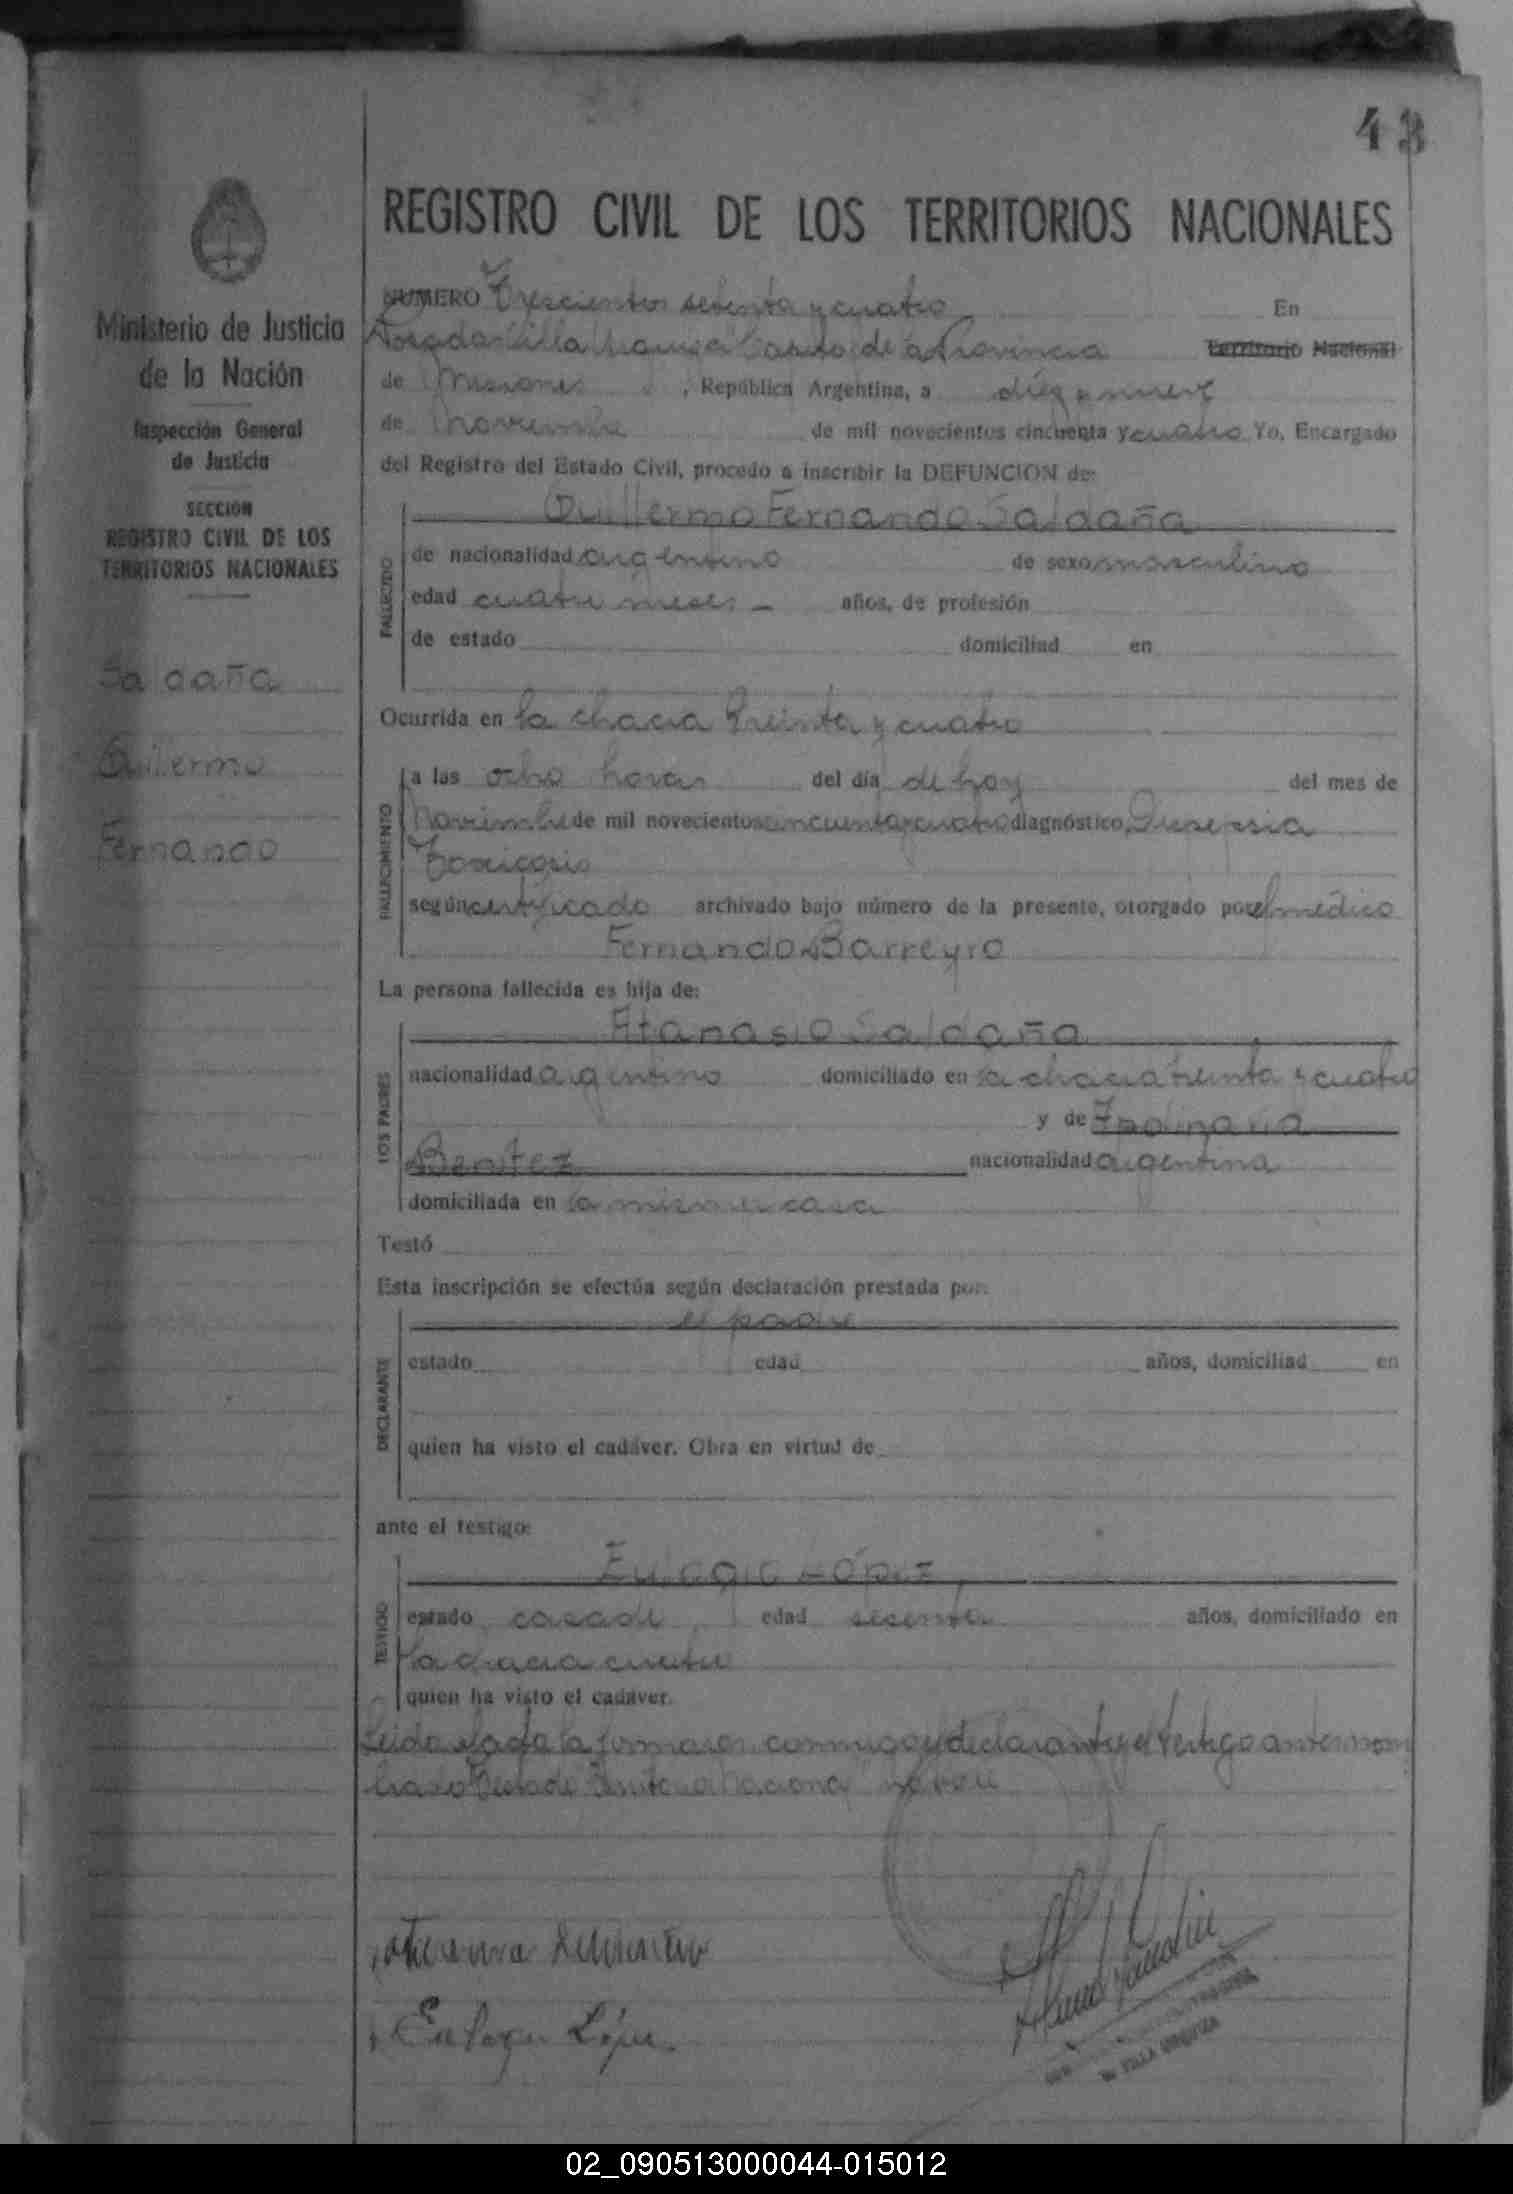 43
REGISTRO CIVIL DE LOS TERRITORIOS NACIONALES
Ministerio de Justicia
de la Nación
Inspección General
de Justicia
SECCION
REGISTRO CIVIL DE LOS
TERRITORIOS NACIONALES
Saldaña
Guillermo
Fernando
NUMERO Trescientos setenta y cuatro En
Posadas Villa Urquiza de la Provincia Territorio Nacional
de Misiones, República Argentina, a diez y nueve
de Noviembre de mil novecientos cincuenta y cuatro Yo, Encargado
del Registro del Estado Civil, procedo a inscribir la DEFUNCION de:
Guillermo Fernando Saldaña
FALLECIDO
de nacionalidad argentino de sexo masculino
edad cuatro meses - años, de profesión
de estado domiciliad en
Ocurrida en la chacra treinta y cuatro
FALLECIMIENTO
a las ocho horas del día de hoy del mes de
Noviembre de mil novecientos cincuenta y cuatro diagnóstico, Dispepsia
Toxicosis
según certificado archivado bajo número de la presente, otorgado por el médico
Fernando Barreyro
La persona fallecida es hija de:
LOS PADRES
Atanasio Saldaña
nacionalidad argentino domiciliado en la chacra treinta y cuatro
y de
Benitez nacionalidad argentina
domiciliada en la misma casa
Testó
Esta inscripción se efectúa según declaración prestada por:
DECLARANTE
el padre
estado edad años, domiciliad en
quien ha visto el cadáver. Obra en virtud de
ante el testigo:
TESTIGO
Eulogio López
estado casado edad sesenta años, domiciliado en
la chacra cuatro
quien ha visto el cadáver.
Leida el acta la firmaron conmigo el declarante y el testigo antes nom
brado Testado Territorio Nacional no vale
Eulogio López
VILLA URQUIZA
02_090513000044-015012